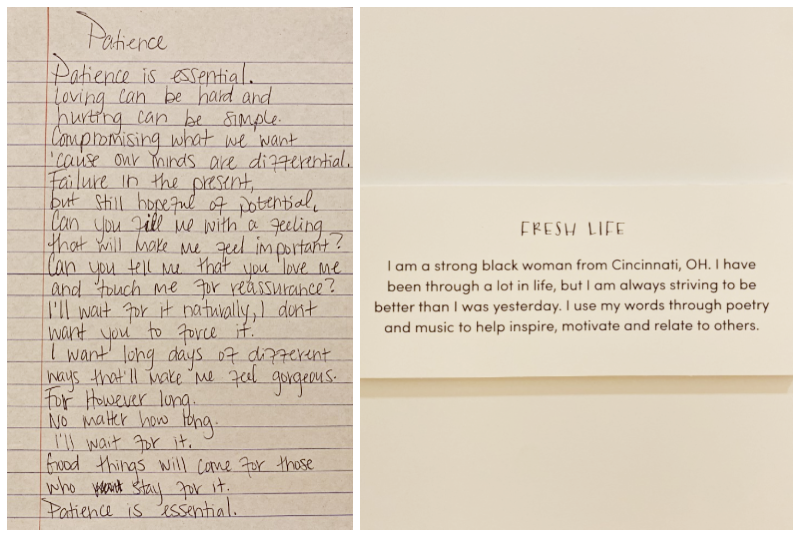 Patience
Patience is essential.
Loving can be hard and
hurting can be simple.
Compromising what we want
'cause our minds are differential.
Failure in the present,
but still hopeful of potential,
Can you fill me with a feeling
that will make me feel important?
Can you tell me that you love me
and touch me for reassurance?
I'll wait for it naturally, I dont
want you to force it.
I want long days of different
ways that'll make me feel gorgeous.
For However long.
No matter how long.
I'll wait for it.
Good things will come for those
who stay for it.
Patience is essential.
FRESH LIFE
I am a strong black woman from Cincinnati, OH. I have
been through a lot in life, but I am always striving to be
better than I was yesterday. I use my words through poetry
and music to help inspire, motivate and relate to others.